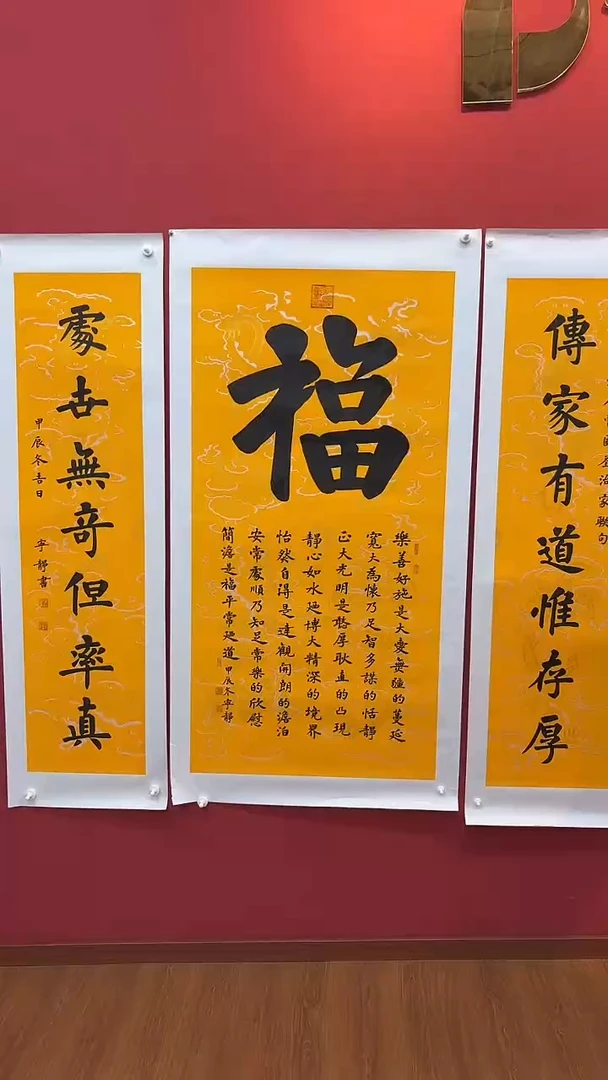 傳家有道惟存厚
福
樂善好施是大愛無疆的蔓延
寬大為懷乃足智多謀的恬靜
正大光明是憨厚耿直的凸現
靜心如水延博大精深的境界
怡然自得是達觀開朗的澹泊
安常處順乃知足常樂的欣慰
簡澹是福平常延道 甲辰冬宁靜
處世無奇但率真
甲辰冬吉日 宁靜書